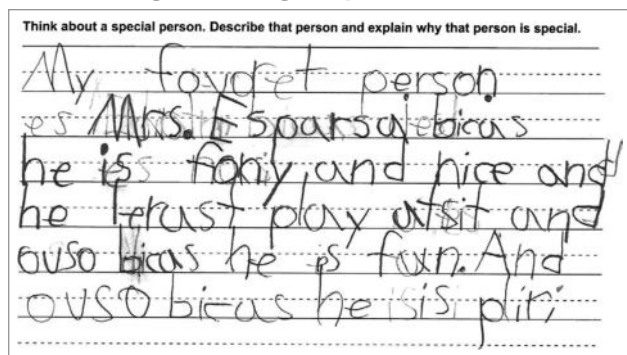 Think about a special person. Describe that person and explain why that person is special.
My favoret person
es Mrs. Esparsa bicas
he is foniy, and nice and
he letast play atsit and
ovso bicas he is fun. And
ovso bicas he is piri